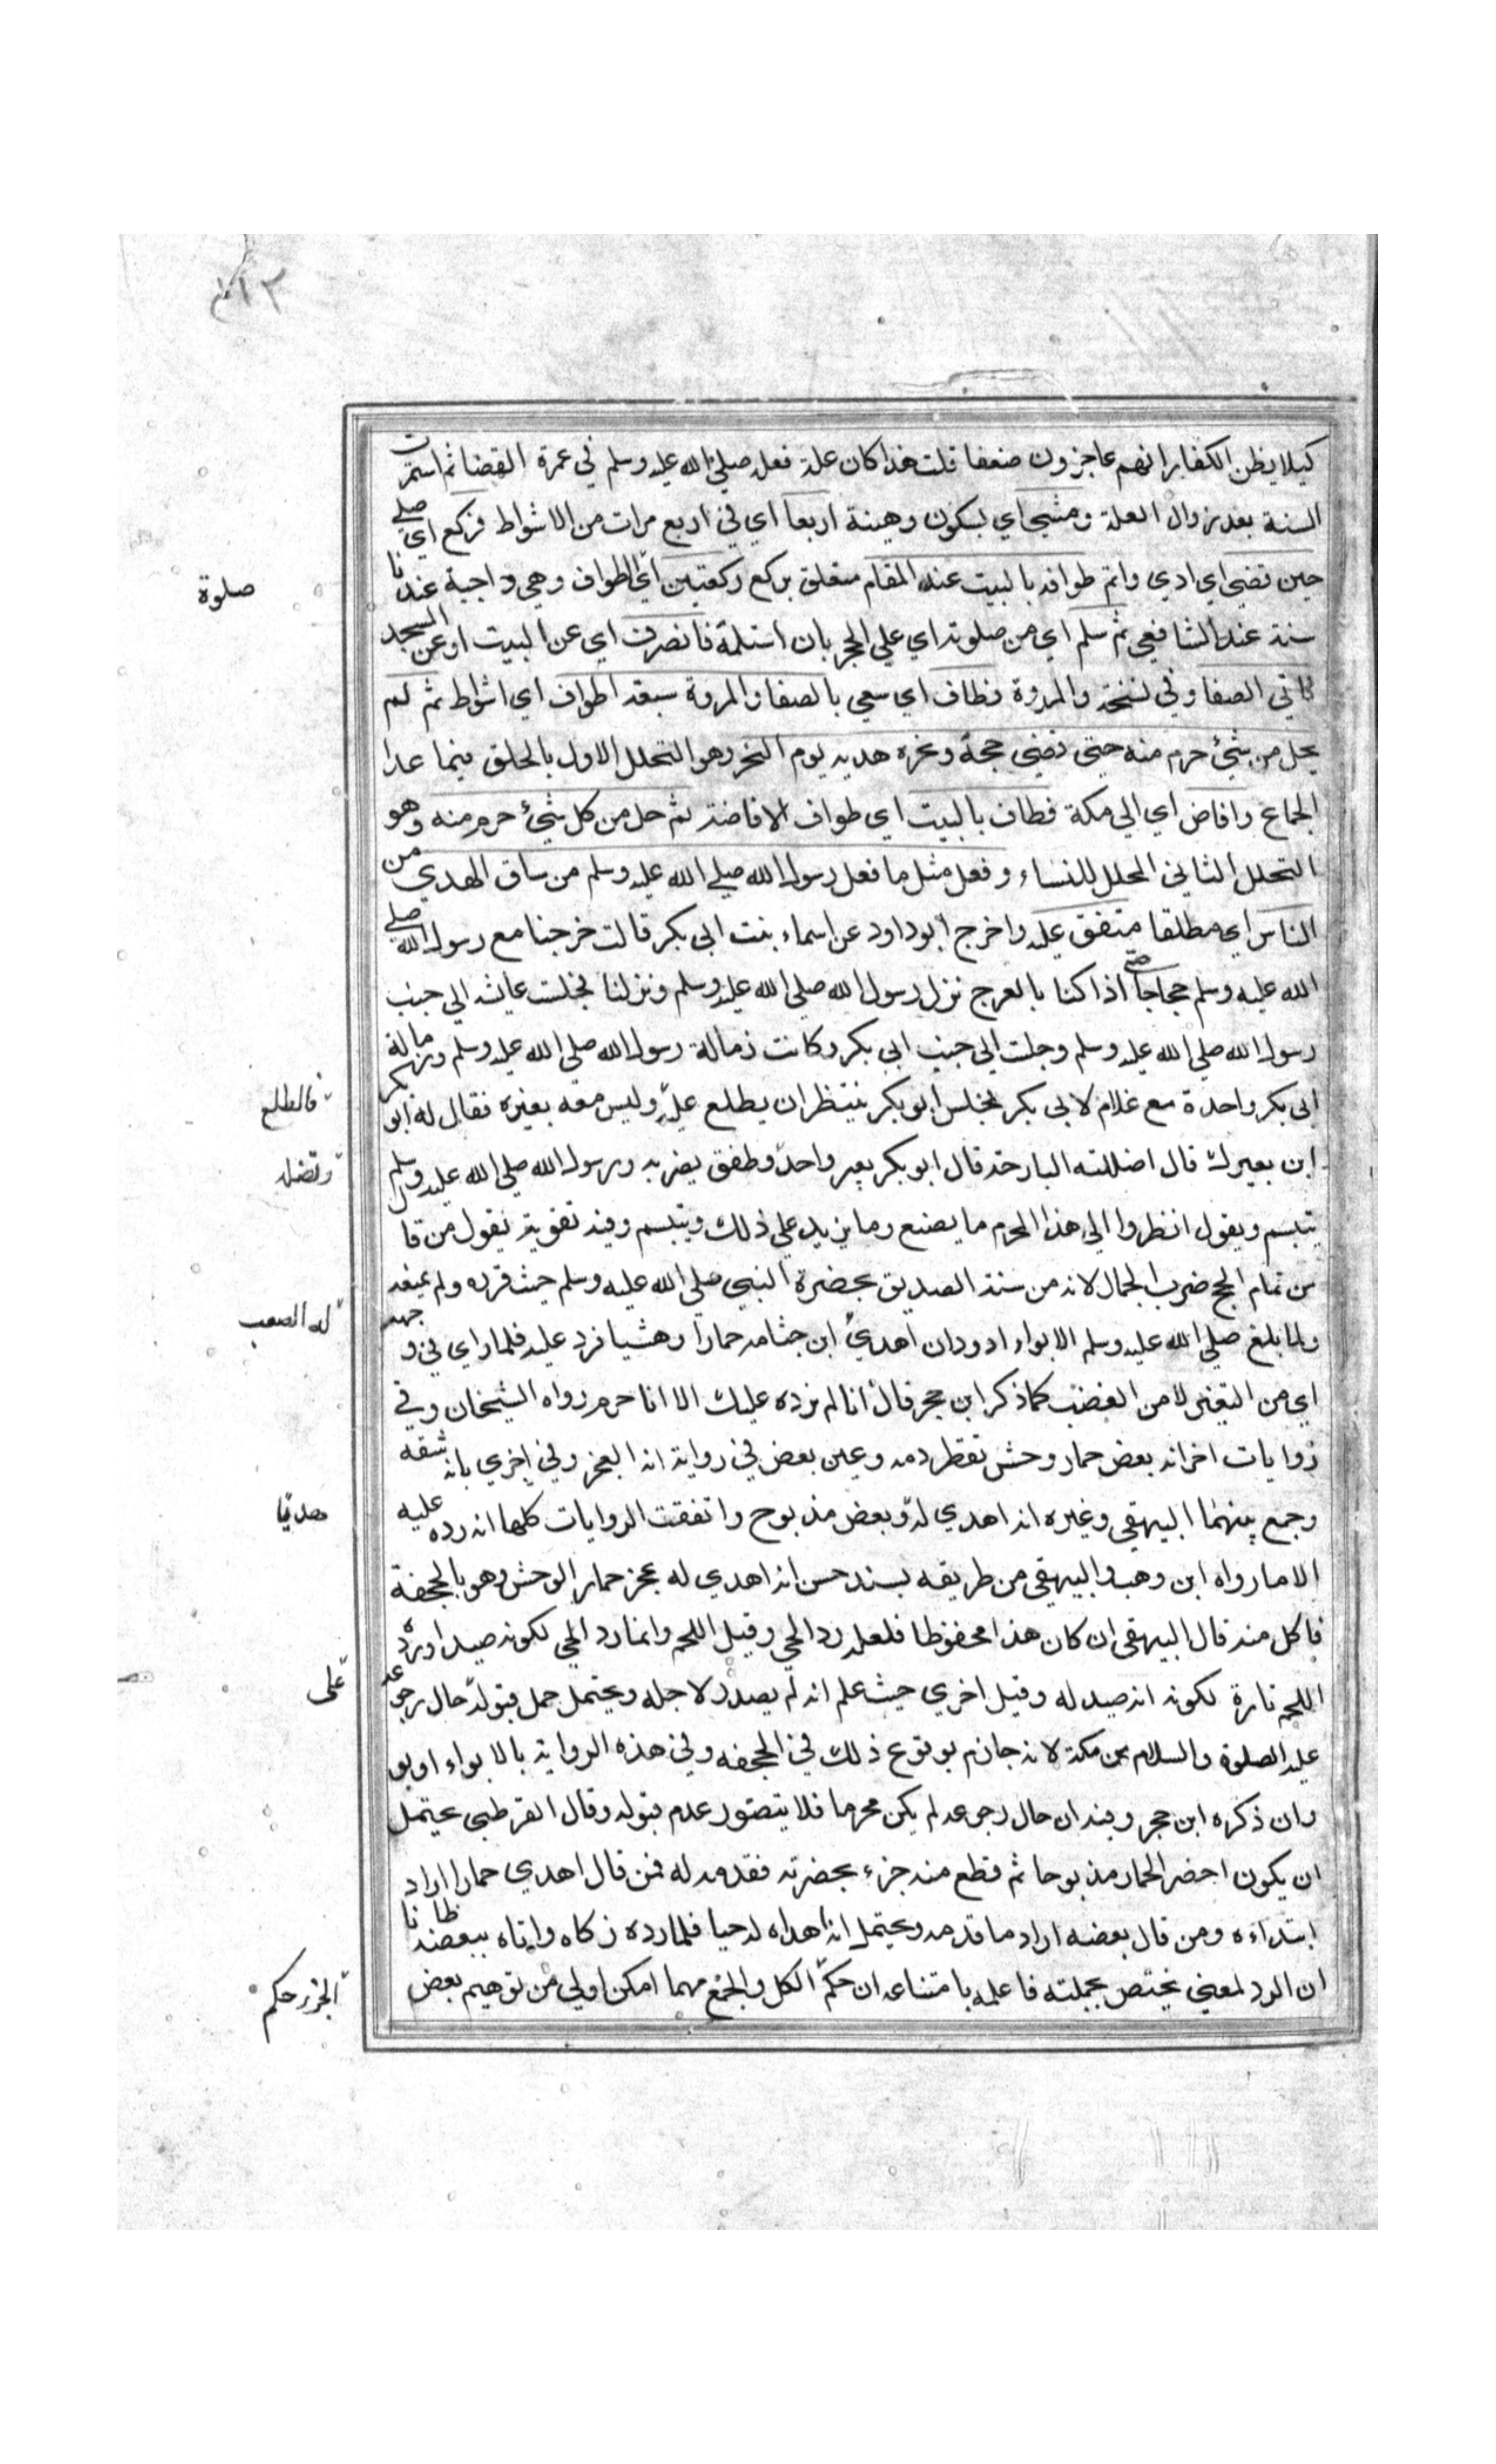 كيلا يظن الكفار انهم عاجزون ضعفا قلت هذا كان علة فعله صلي الله عليه وسلم في عمرة القضا ثم استمرت
السنة بعد زوال العلة ومشي اي بسكون وهينة اربعا اي في اربع مرات من الاشواط فركع اي صلي
حين قضي اي ادي واتم طوافه بالبيت عند المقام متعلق بركع ركعتين اي الطواف وهي واجبة عندنا
صلوة
سنة عند الشافعي ثم سلم اي من صلوته اي علي الحجر بان استلمه فانصرف اي عن البيت او عن المسجد
فاتي الصفا وفي نسخة والمروة فطاف اي سعي بالصفا والمروة سبعة اطواف اي اشواط ثم لم
يحل من شئ حرم منه حتي قضي حجه ونحره هديه يوم النحر وهو التحلل الاول بالحلق فيما عدا
الجماع وافاض اي الي مكة فطاف بالبيت اي طواف الافاضة ثم حل من كل شئ حرم منه وهو
التحلل الثاني المحلل للنساء وفعل مثل ما فعل رسول الله صلي الله عليه وسلم من ساق الهدي من
الناس اي مطلقا متفق عليه واخرج ابو داود عن اسماء بنت ابي بكر قالت خرجنا مع رسول الله صلي
الله عليه وسلم حجاجا حتي اذا كنا بالعرج نزل رسول الله صلي الله عليه وسلم ونزلنا فجلست عائشه الي جنب
رسول الله صلي الله عليه وسلم وجلست الي جنب ابي بكر وكانت زمالة رسول الله صلي الله عليه وسلم وزمالة
ابي بكر واحدة مع غلام لابي بكر فجلس ابو بكر ينتظر ان يطلع عليه وليس معه بعيره فقال له ابو بكر
فالطلع
اين بعيرك قال اضللته البارحة قال ابو بكر بعير واحد وطفق يضربه ورسول الله صلي الله عليه وسلم
وتضله
يتبسم ويقول انظروا الي هذا المحرم ما يصنع وما يزيد علي ذلك ويتبسم وفيه تقوية لقول من قال
من تمام الحج ضرب الجمال لانه من سنة الصديق بحضرة النبي صلي الله عليه وسلم حيث قرره ولم يمنعه
ولما بلغ صلي الله عليه وسلم الابواء او ودان اهدي ابن جثامه حمارا وحشيا فرد عليه فلما راي في وجهه
له الصعب
اي من التغير لا من الغضب كما ذكر ابن حجر قال انا لم نرده عليك الا انا حرم رواه الشيخان وفي
روايات اخر انه بعض حمار وحش تقطر دمه وعين بعض في رواية انه العجز وفي اخري بانه شقه
وجمع بينهما البيهقي وغيره انه اهدي له وبعض مذبوح واتفقت الروايات كلها انه رده عليه
الا ما رواه ابن وهب والبيهقي من طريقه بسند حسن انه اهدي له عجز حمار الوحش وهو بالجحفة
فاكل منه قال البيهقي ان كان هذا محفوظا فلعله رد الحي وقبل اللحم وانما رد الحي لكونه صيدا ورد
اللحم تارة لكونه انه صيد له وقبل اخري حيث علم انه لم يصدر لاجله ويحتمل حمل قبوله حال رجوعه
علي
عليه الصلوة والسلام من مكة لانه جازم بوقوع ذلك في الجحفه وفي هذه الرواية بالابواء او بو
وان ذكره ابن حجر وفيه ان حال رجوعه لم يكن محرما فلا يتصور عدم قبوله وقال القرطبي يحتمل
ان يكون احضر الحمار مذبوحا ثم قطع منه جزء بحضرته فقدمه له فمن قال اهدي حمارا اراد
ابتداءه ومن قال بعضه اراد ما قدمه ويحتمل انه اهداه له حيا فلما رده زكاه واتاه ببعضه ظانا
ان الرد لمعني يختص بجملته فاعلمه بامتناعه ان حكم الكل والجمع مهما امكن اولي من توهيم بعض
الجزء حكم